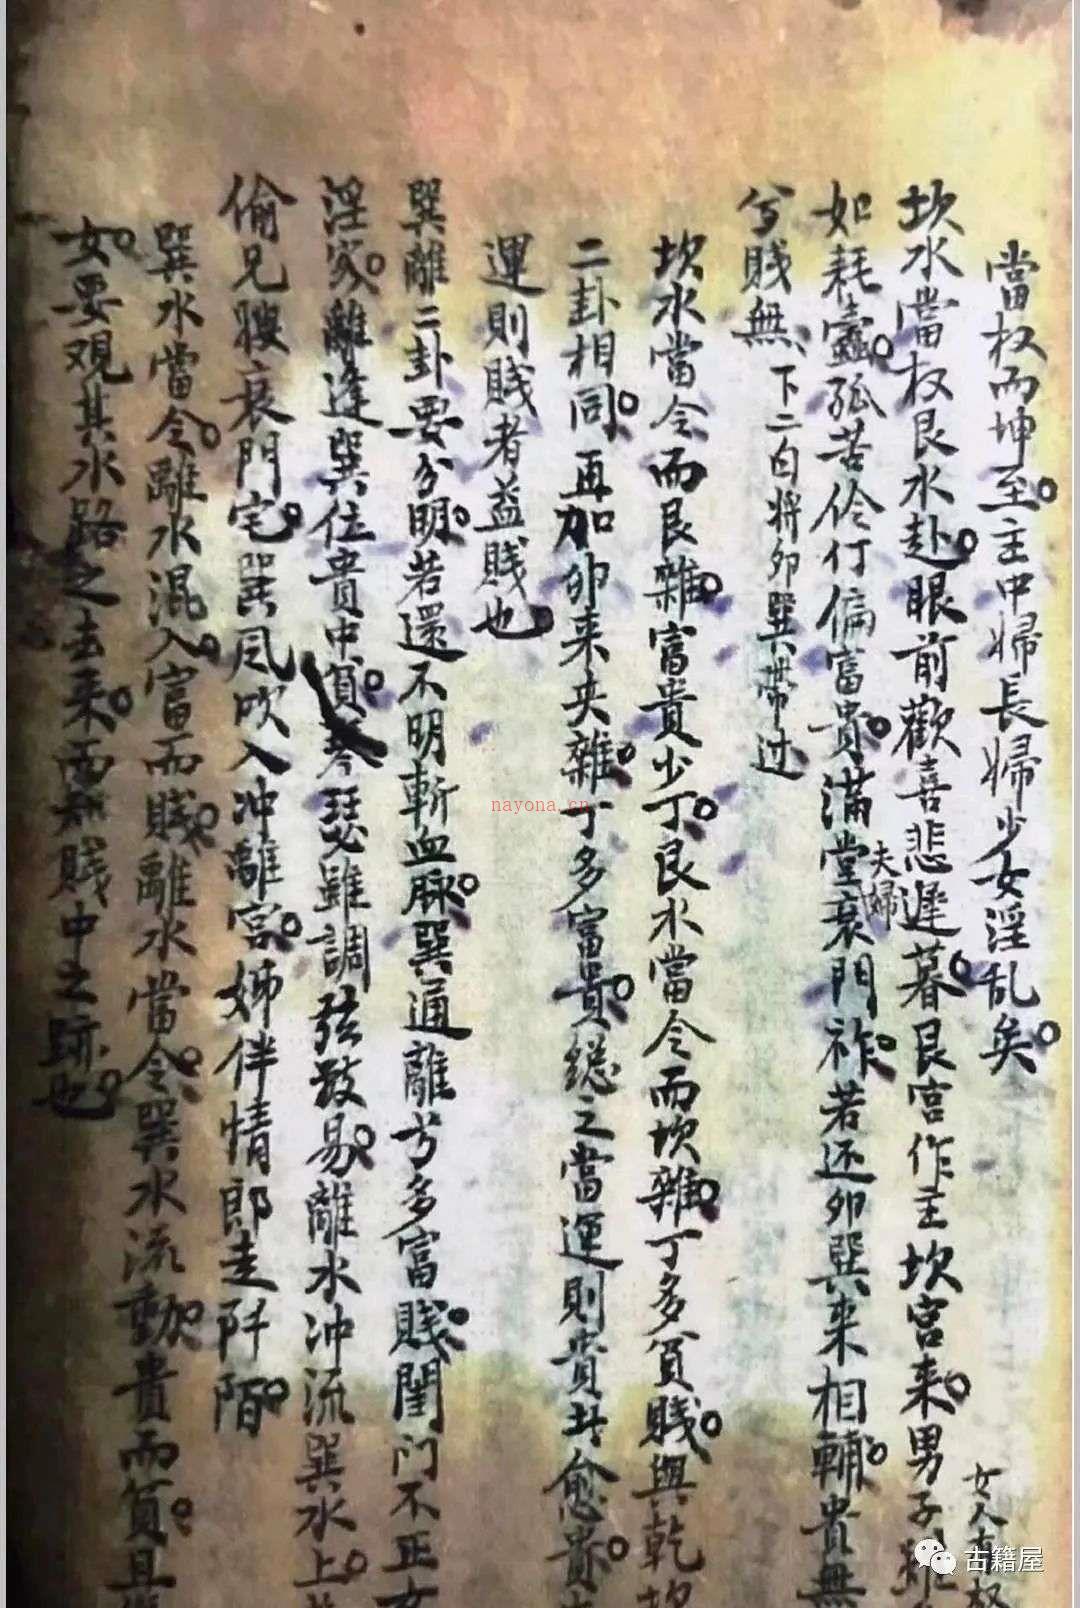 當权而坤至。主中婦長婦少女淫乱矣。
女人有权
坎水當权艮水赴。眼前歡喜悲遲暮。艮宫作主坎宫来。男子雖
夫婦
如耗蠹。孤苦伶仃偏富贵。滿堂衰門祚。若还卯巽来相輔。貴無
兮賤無、下二白将卯巽带过
坎水當令而艮雜。富貴少丁。艮水當令而坎雜。丁多貧賤。與乾
二卦相同。再加卯来夹雜。丁多富貴。總之當運則貴者愈贵。
運則賤者益賤也。
巽離二卦要分明。若還不明斬血脉。巽通離兮多富賤。閨门不正女
淫。離逢巽位貴中貧。琴瑟雖調弦易。離水冲流巽水上。
偷兄嫂衰門宅。巽風吹入冲離宫。姊伴情郎走阡陌。
巽水當令。離水混入。富而賤。離水當令。巽水流動。貴而貧。且
女。要观其水路之去来。而無賤中之跡也。
nayona.cn
古籍屋